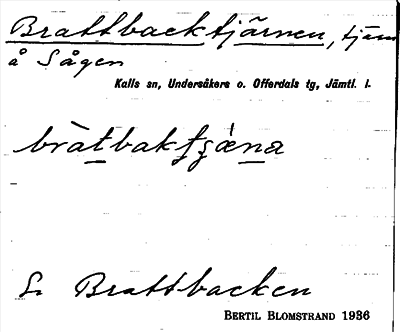 Brattbacktjärnen, tjärn
å Sågen
Kalls sn, Undersåkers o. Offerdals tg, Jämtl. l.
bràtbakʈʂæ̀na
S. Brattbacken
BERTIL BLOMSTRAND 1936